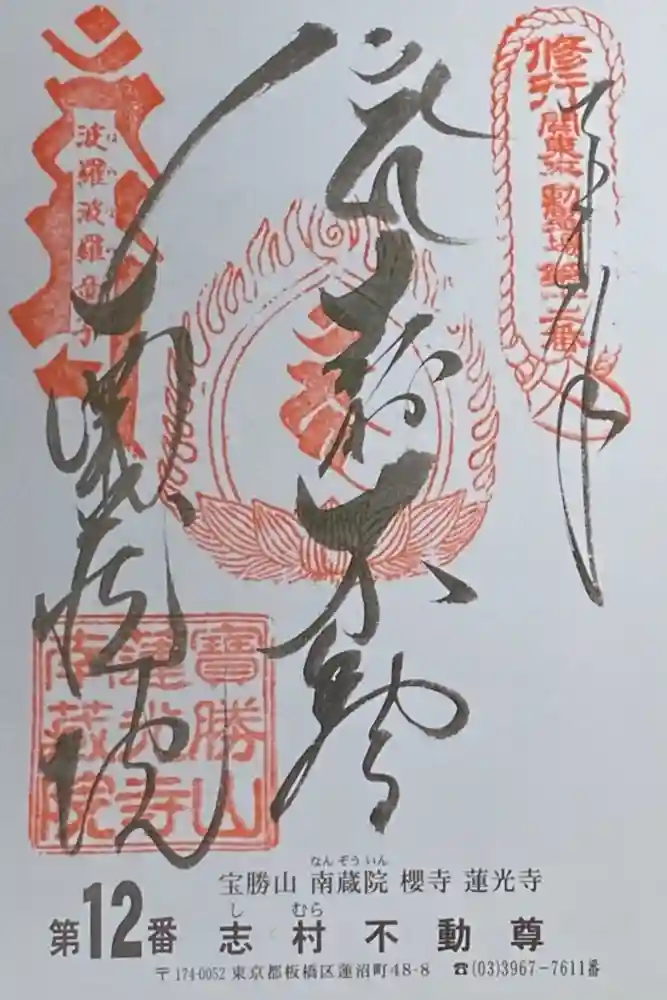 修行
関東不動霊場第十二番
奉拝
志村不動尊
波羅波羅
南蔵院
寶勝山
蓮光寺
南蔵院
なんぞういん
宝勝山 南蔵院 櫻寺 蓮光寺
し むら
第12番 志村不動尊
〒174-0052 東京都板橋区蓮沼町48-8 ☎(03)3967-7611番